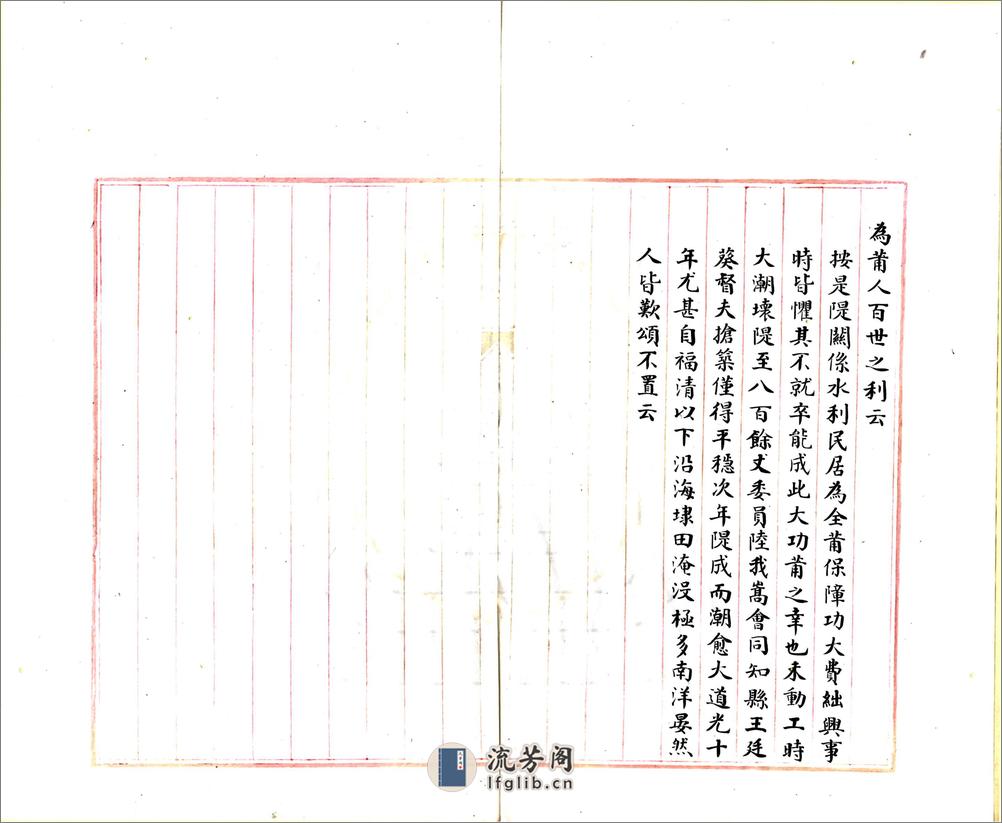 為莆人百世之利云
按是隄關係水利民居為全莆保障功大費絀興事
時皆懼其不就卒能成此大功莆之幸也未動工時
大潮壞隄至八百餘丈委員陸我嵩會同知縣王廷
葵督夫搶築僅得平穩次年隄成而潮愈大道光十
年尤甚自福清以下沿海埭田淹浸極多南洋晏然
人皆歎頌不置云
流芳阁
lfglib.cn